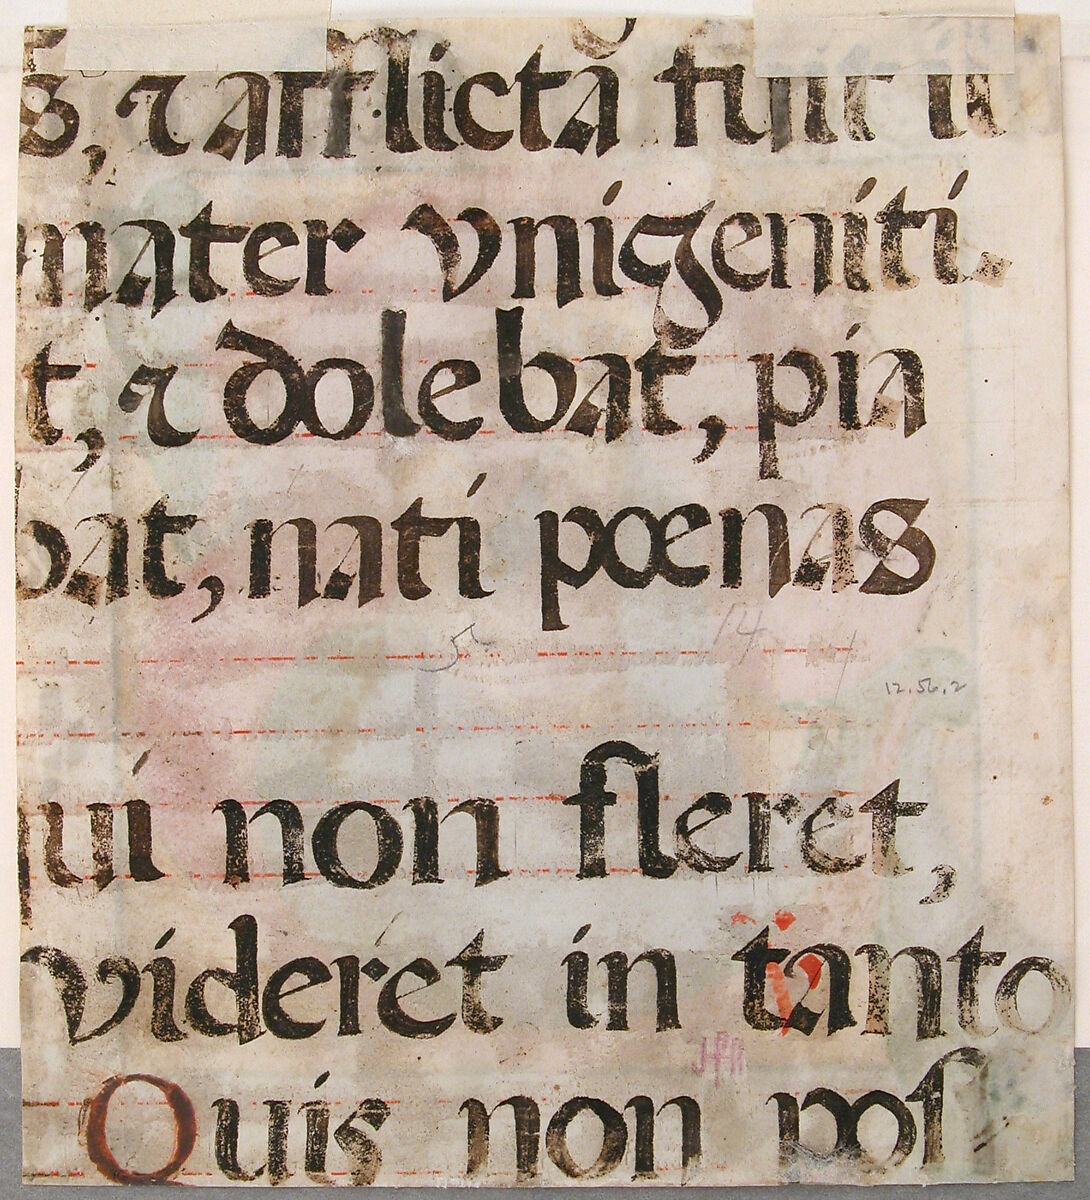 s, & afflictâ fuit il
mater vnigeniti.
t, & dolebat, pia
bat, nati pœnas
14
12.56.2
qui non fleret,
videret in tanto
Quis non poſſ